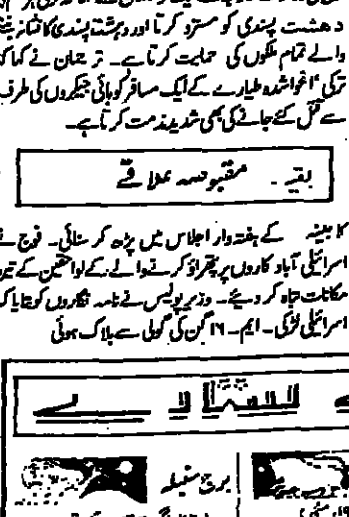 دہشت پسندی کو مسترد کرتا اور دہشت پسندی کا نشانہ بننے
والے تمام ملکوں کی حمایت کرتا ہے۔ ترجمان نے کہا کہ
ترکی اغوا شدہ طیارے کے ایک مسافر کو ہائی جیکروں کی طرف
سے قتل کئے جانے کی بھی شدید مذمت کرتا ہے۔
بقیہ ۔ مقبوضہ علاقے
کابینہ کے ہفتہ وار اجلاس میں پڑھ کر سنائی۔ فوج نے
اسرائیلی آباد کاروں پر پتھراؤ کرنے والے کے لواحقین کے تین
مکانات تباہ کر دیئے۔ وزیر پولیس نے نامہ نگاروں کو بتایا کہ
اسرائیلی لڑکی ۔ ایم ۔ ۱۶ گن کی گولی سے ہلاک ہوئی
برج سنبلہ